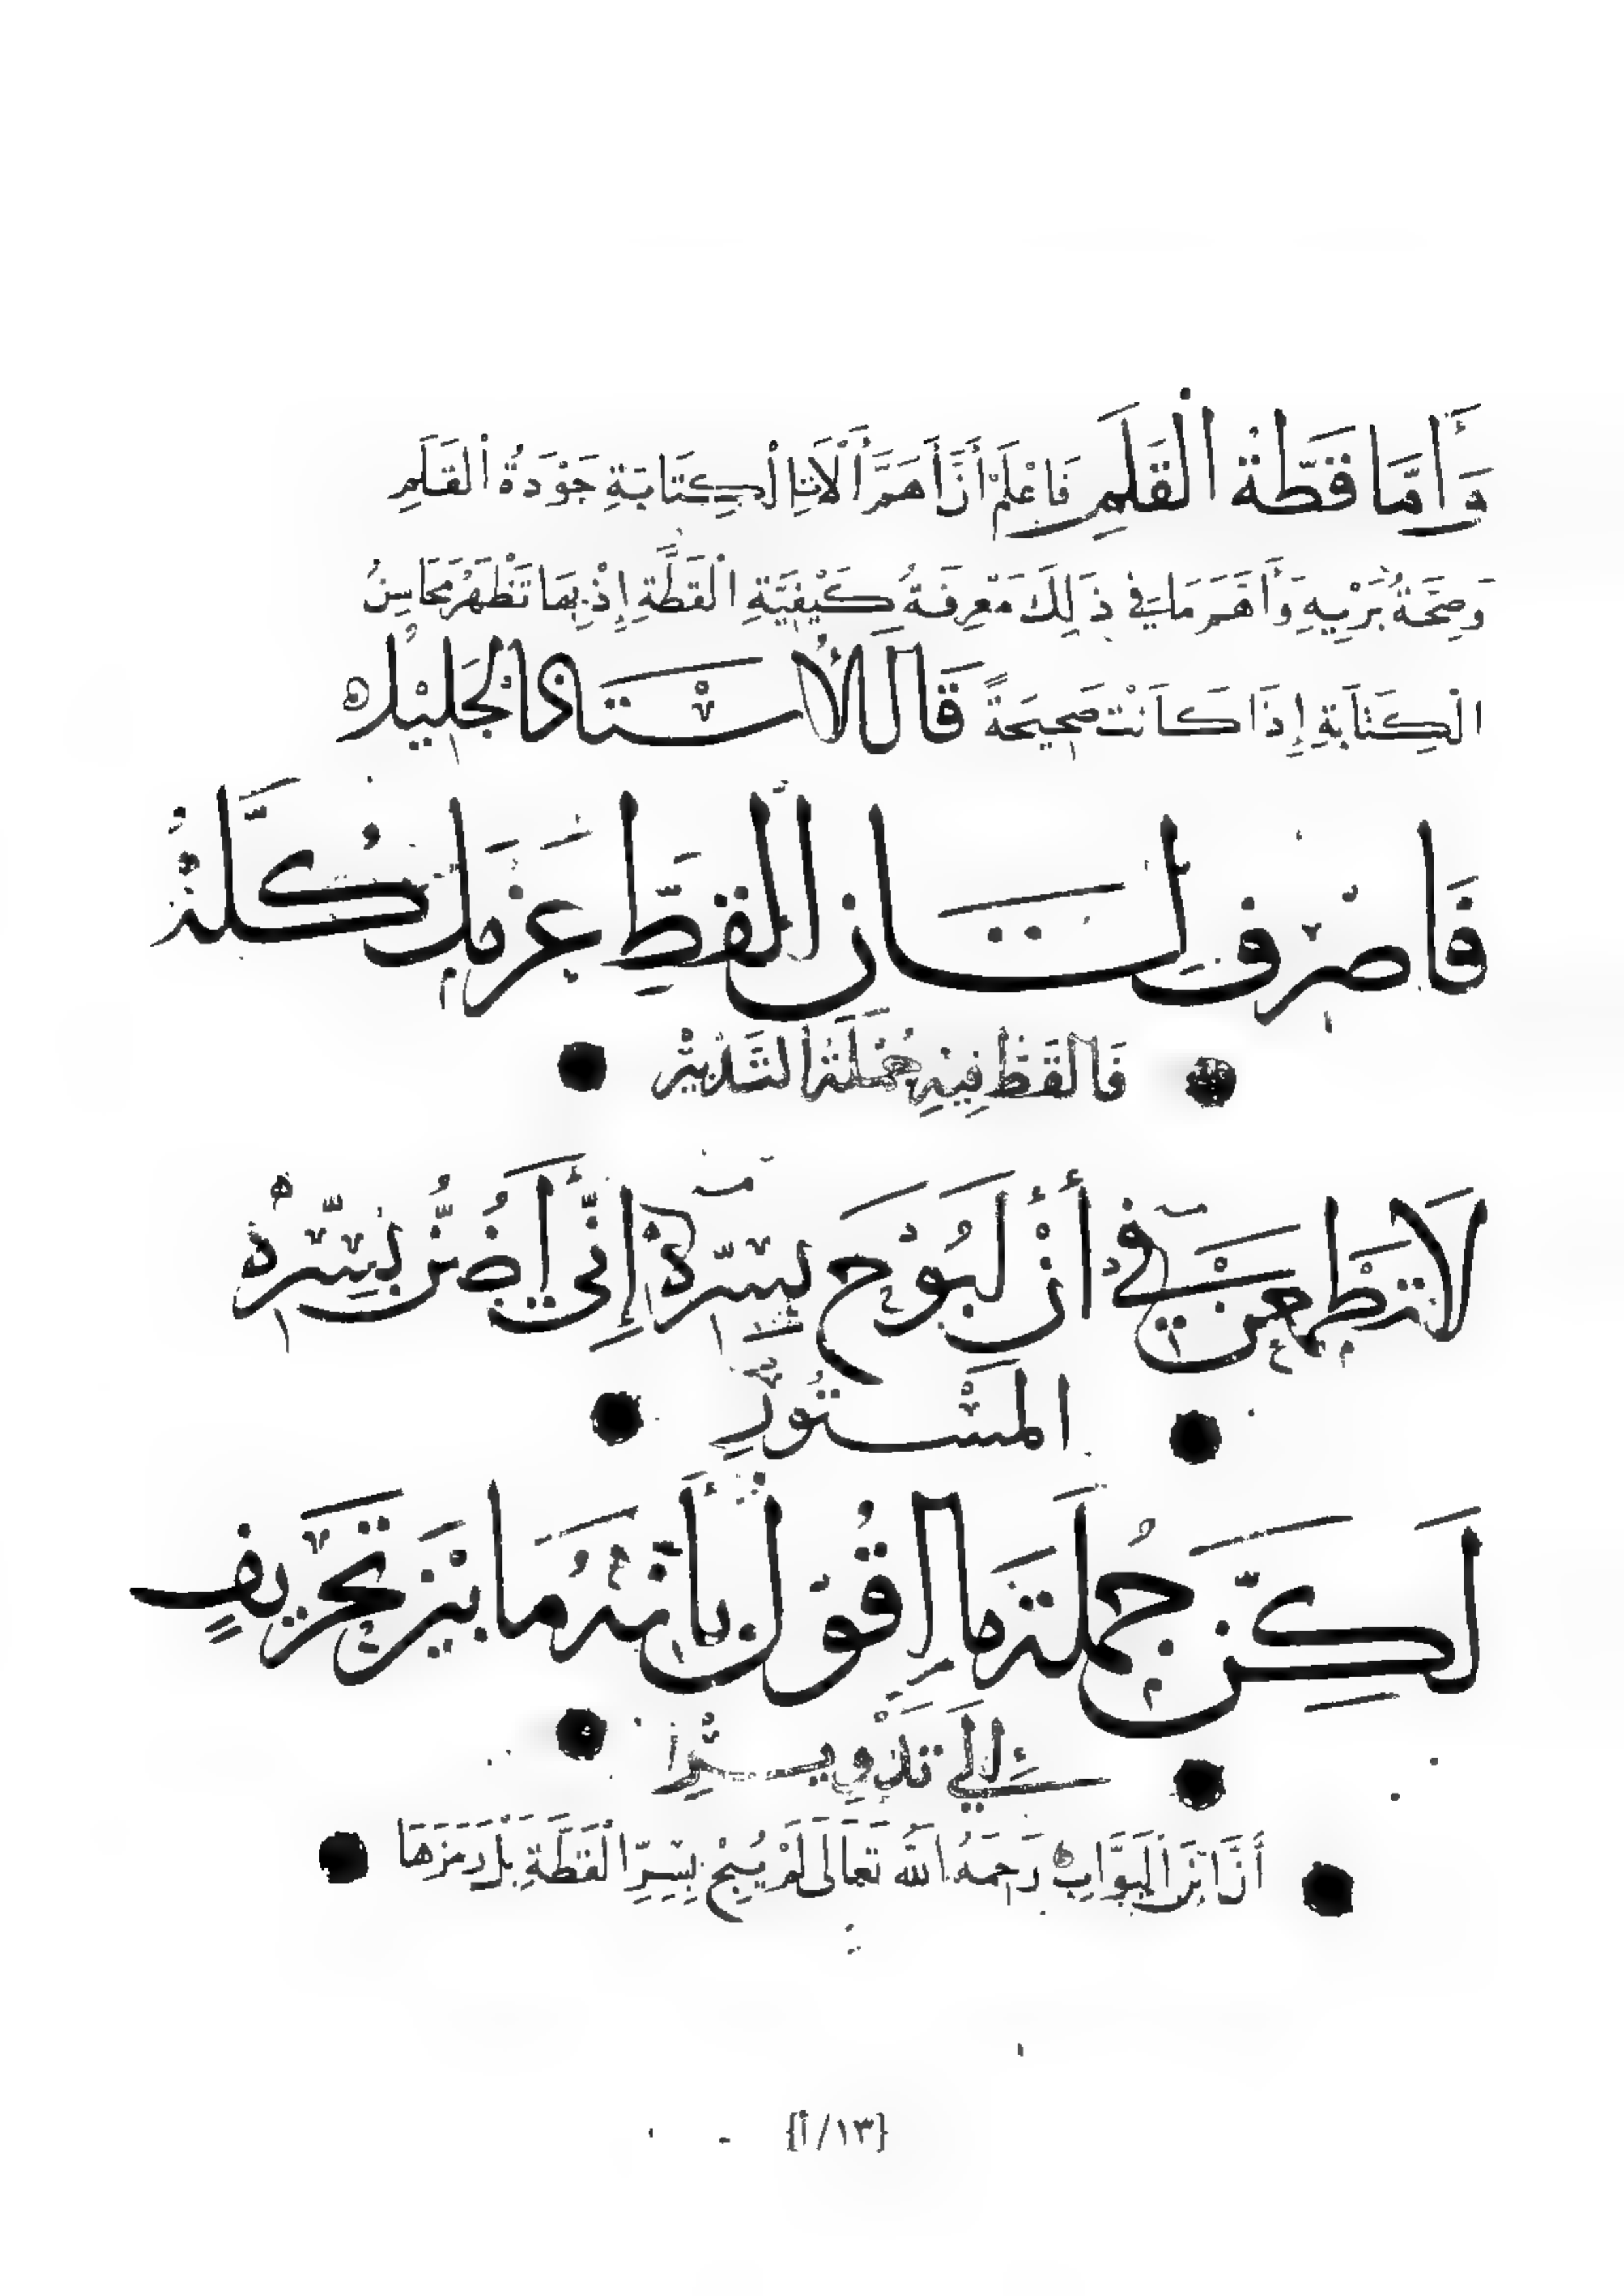 وَأَمَّا قَطَّةُ الْقَلَمِ فَاعْلَمْ أَنَّ أَهَمَّ آلَاتِ الْكِتَابَةِ جَوْدَةُ الْقَلَمِ
وَصِحَّةُ بَرْيِهِ وَأَهَمَّ مَا فِي ذَلِكَ مَعْرِفَةُ كَيْفِيَّةِ الْقَطَّةِ إِذْ بِهَا تَظْهَرُ مَحَاسِنُ
الْكِتَابَةِ إِذَا كَانَتْ صَحِيحَةً قَالَ الْأُسْتَاذُ الْجَلِيْلُ
فَاصْرِف لِشَانِ الْقَطِّ عَزْمَكَ كُلَّهُ
فَالْقَطُّ فِيْهِ جُمْلَةُ التَّدْبِيْرِ
لَا تَطْمَعَنْ فِي أَنْ أَبُوْحَ بِسِرِّهِ إِنِّي أَضُنُّ بِسِرِّهِ
الْمَسْتُورِ
لَكِنَّ جُمْلَةَ مَا أَقُوْلُ بِأَنَّهُ مَا بَيْنَ تَحْرِيفٍ
إِلَى تَدْوِيرِ
أَنَّ ابْنَ الْبَوَّابِ رَحِمَهُ اللَّه تَعَالَى لَمْ يُبِحْ بِسِرِّ الْقَطَّةِ بَلْ رَمَزَهَا
{١٣/أ}